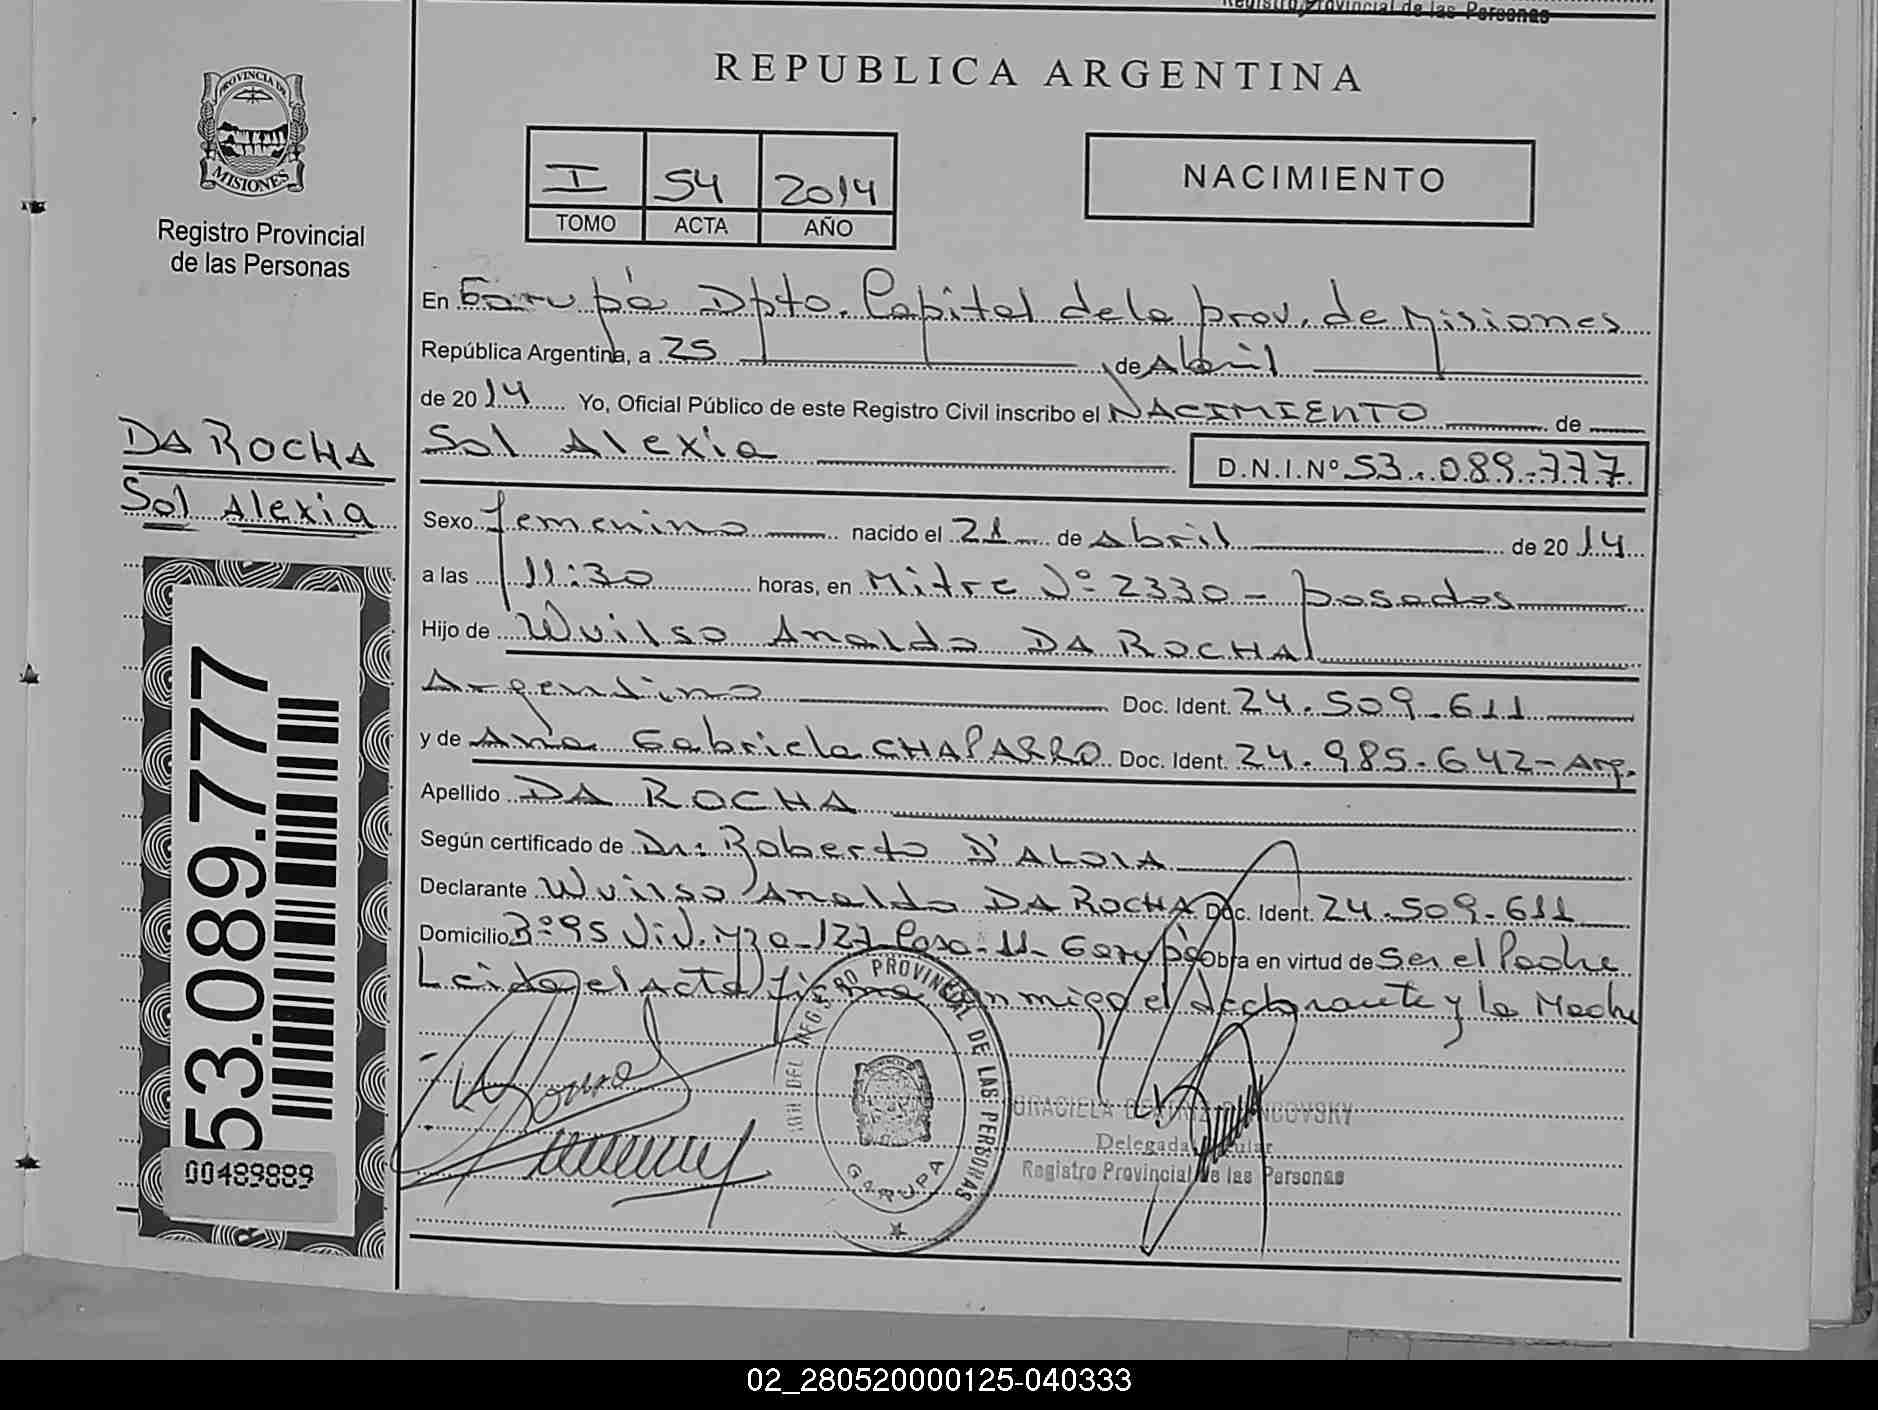 Registro Provincial de las Personas
REPUBLICA ARGENTINA
PROVINCIA DE
MISIONES
Registro Provincial
de las Personas
I 54 2014
TOMO ACTA AÑO
NACIMIENTO
En Garupá Dpto. Capital de la prov. de Misiones
República Argentina, a 25 de Abril
de 2014 Yo, Oficial Público de este Registro Civil inscribo el NACIMIENTO de
Sol Alexia D.N.I.Nº 53.089.777
DA ROCHA
Sol Alexia
Sexo femenino nacido el 21 de Abril de 2014
a las 11:30 horas, en Mitre Nº 2330 - posadas
Hijo de Wuilso Analdo DA ROCHA
Argentino Doc. Ident. 24.509.611
y de Ana Gabriela CHAPARRO Doc. Ident. 24.985.642 - Arg.
Apellido DA ROCHA
Según certificado de Dr. Roberto D'ALOIA
Declarante Wuilso Analdo DA ROCHA Doc. Ident. 24.509.611
Domicilio Bº 95 Viv. Mza - 127 Casa - 11 - Garupá Obra en virtud de Ser el Padre
Leida el Acta firma conmigo el declarante y la Madre
53.089.777
00489889
REGISTRO PROVINCIAL DE LAS PERSONAS
GARUPA
GRACIELA
Delegada Titular
Registro Provincial de las Personas
02_280520000125-040333